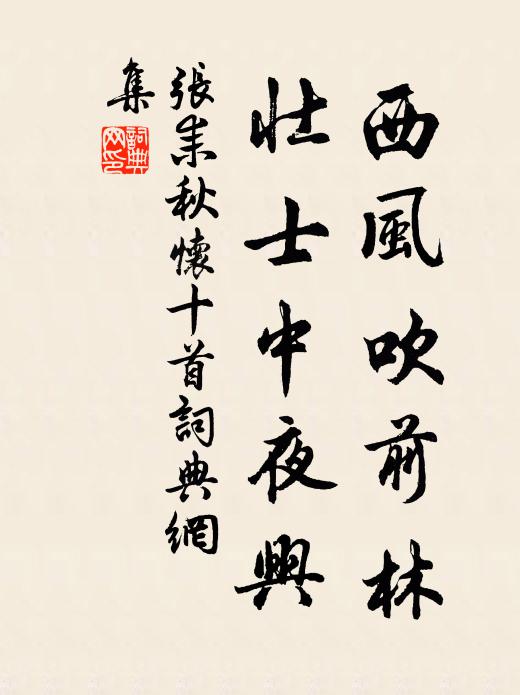 西風吹前林
壯士中夜興
張耒秋懷十首詞典網
集
詞典網印